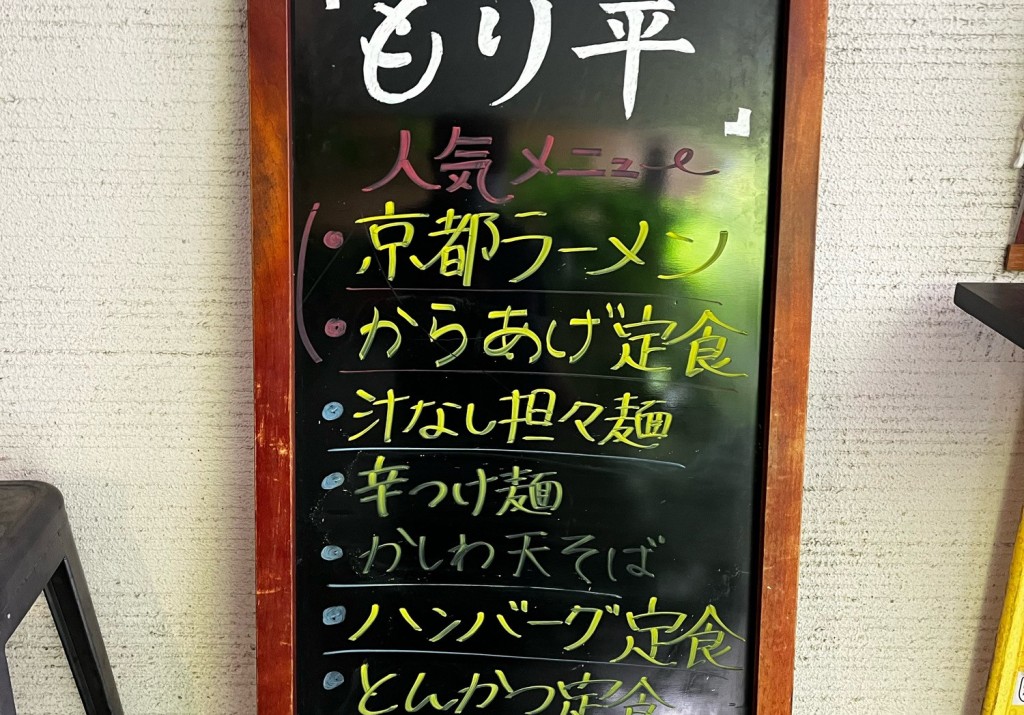 「もり平」
人気メニュー
・京都ラーメン
・からあげ定食
・汁なし担々麺
・辛つけ麺
・かしわ天そば
・ハンバーグ定食
・とんかつ定食